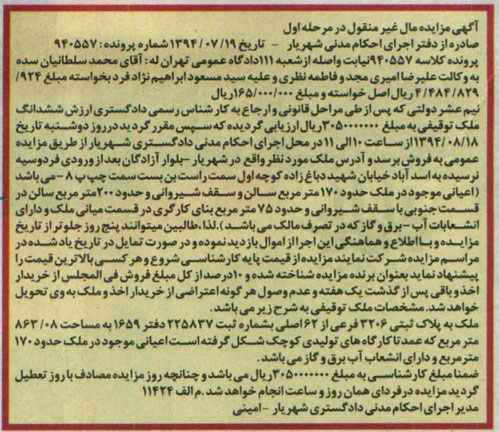 آگهی مزایده مال غیر منقول در مرحله اول
صادره از دفتر اجرای احکام مدنی شهریار - تاریخ ۱۳۹۴/۰۷/۱۹ شماره پرونده: ۹۴۰۵۵۷
پرونده کلاسه ۹۴۰۵۵۷ نیابت واصله از شعبه ۱۱۱ دادگاه عمومی تهران له: آقای محمد سلطانیان سده
به وکالت علیرضا امیری مجد و فاطمه نظری و علیه سید مسعود ابراهیم نژاد فرد بخواسته مبلغ ۹۲۴/
۴/۴۸۴/۸۲۹ ریال اصل خواسته و مبلغ ۱۶۵/۰۰۰/۰۰۰ ریال
نیم عشر دولتی که پس از طی مراحل قانونی و ارجاع به کارشناس رسمی دادگستری ارزش ششدانگ
ملک توقیفی به مبلغ ۳۰۵۰۰۰۰۰۰۰ ریال ارزیابی گردیده که سپس مقرر گردید در روز دوشنبه تاریخ
۱۳۹۴/۰۸/۱۸ از ساعت ۱۰ الی ۱۱ در محل اجرای احکام مدنی دادگستری شهریار از طریق مزایده
عمومی به فروش برسد و آدرس ملک مورد نظر واقع در شهریار - بلوار آزادگان بعد از ورودی فردوسیه
نرسیده به اسد آباد خیابان شهید دباغ زاده کوچه اول سمت راست بن بست سمت چپ پ ۸ - می باشد
(اعیانی موجود در ملک حدود ۱۷۰ متر مربع سالن و سقف شیروانی و حدود ۲۰۰ متر مربع سالن در
قسمت جنوبی با سقف شیروانی و حدود ۷۵ متر مربع بنای کارگری در قسمت میانی ملک و دارای
انشعابات آب - برق و گاز که در تصرف مالک می باشد). لذا، طالبین میتوانند پنج روز جلوتر از تاریخ
مزایده و با اطلاع و هماهنگی این اجرا از اموال بازدید نموده و در صورت تمایل در تاریخ یاد شده در
مراسم مزایده شرکت نمایند مزایده از قیمت پایه کارشناسی شروع و هر کسی بالاترین قیمت را
پیشنهاد نماید بعنوان برنده مزایده شناخته شده و ۱۰ درصد از کل مبلغ فروش فی المجلس از خریدار
اخذ و باقی پس از گذشت یک هفته و عدم وصول هر گونه اعتراضی از خریدار اخذ و ملک به وی تحویل
خواهد شد. مشخصات ملک توقیفی به شرح زیر می باشد.
ملک به پلاک ثبتی ۳۲۰۶ فرعی از ۶۲ اصلی بشماره ثبت ۲۲۵۸۳۷ دفتر ۱۶۵۹ به مساحت ۸۶۳/۰۸
متر مربع که عمدتا کارگاه های تولیدی کوچک شکل گرفته است اعیانی موجود در ملک حدود ۱۷۰
متر مربع و دارای انشعاب آب برق و گاز می باشد.
ضمنا مبلغ کارشناسی به مبلغ ۳۰۵۰۰۰۰۰۰۰ ریال می باشد و چنانچه روز مزایده مصادف با روز تعطیل
گردید مزایده در فردای همان روز و ساعت انجام خواهد شد. م الف ۱۱۴۲۴
مدیر اجرای احکام مدنی دادگستری شهریار - امینی